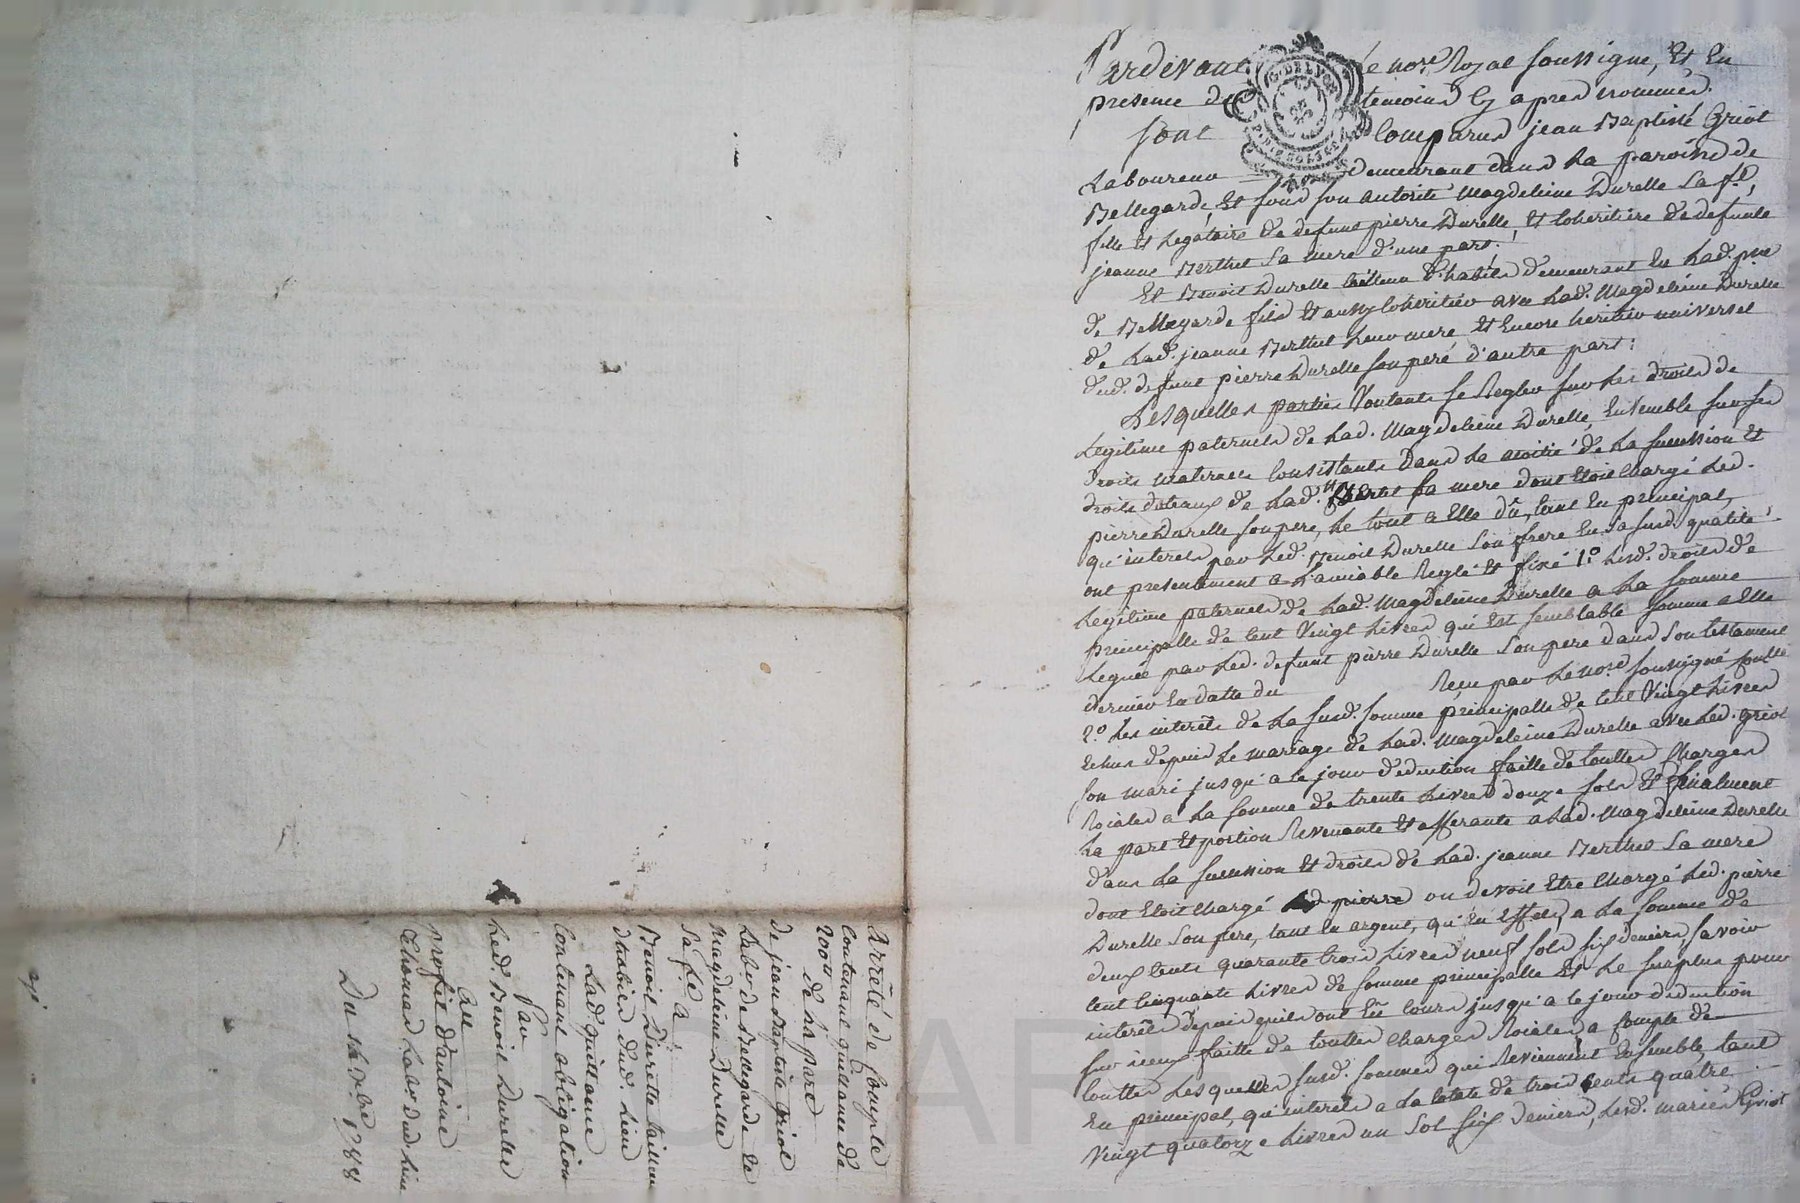 Pardevant le nore. Royal soussigné, Et En
presence des temoins Cy apres nommés.
sont Comparus jean Baptiste Griot
Laboureur demeurant dans La paroisse de
Bellegarde, Et sous son autorité Magdeleine Durelle Sa fe,
fille Et Legataire de defunt pierre Durelle, Et Coheritière de defunte
jeanne Berthet Sa mere d'une part.
Et Benoit Durelle tailleur d'habits demeurant En Lad. psse
de Bellegarde fils Et aussy Coheritier avec Lad. Magdeleine Durelle
de Lad. jeanne Berthet Leur mere, Et Encore heritier universel
dud. defunt pierre Durelle son peré d'autre part:
Lesquelles parties Voulants se Regler sur Les droits de
Legitime paternels de Lad. Magdeleine Durelle, Ensemble sur ses
droits maternels Consistants Dans La moitié de La succession Et
droits dotaux de Lad. Berthet sa mere dont Etoit Chargé Led.
pierre Durelle son pere, Le tout a Elle dû, tant En principal,
qu'interets par Led. Benoit Durelle Son frere En Sa susd. qualité,
ont presentement a L'amiable Reglé Et fixé 1.º Lesd. droits de
Legitime paternels de Lad. Magdeleine Durelle a La somme
principalle de Cent Vingt Livres qui Est semblable somme a Elle
Leguée par Led. defunt pierre Durelle Son pere dans Son testament
dernier En datte du Reçu par Le nore soussigné
2.º Les interêts de La susd. somme principalle de Cent Vingt Livres
Echus depuis Le mariage de Lad. Magdeleine Durelle avec Led. Griot
son mari jusqu'a ce jour deduction faitte de touttes Charges
Roiales a La somme de trente Livres douze sols Et finalement
La part Et portion Revenante Et afferante a Lad. Magdeleine Durelle
dans La succession Et droits de Lad. jeanne Berthet Sa mere
dont Etoit Chargé Led pierre ou devoit Etre Chargé Led. pierre
Durelle Son pere, tant En argent, qu'En Effets, a La somme de
deux Cents quarante trois Livres neuf sols six deniers, savoir
Cent Cinquante Livres de somme principalle Et Le surplus pour
interêts depuis qu'ils ont Eû Cours jusqu'a ce jour deduction
sur iceux faitte de touttes Charges Roiales, a Compte de
touttes Lesquelles susd. sommes qui Reviennent Ensemble, tant
En principal, qu'interets a La totale de trois Cents quatre
Vingt quatorze Livres un Sol six deniers, Lesd. mariés Griot
Arrêté de Compte
Contenant quittance de
200ll
de La part
de jean Baptiste Griot
Labr. de Bellegarde Et
Magdeleine Durelle
Sa fe a
Benoit Durelle tailleur
d'habits dud. Lieu
Lad. quittance
Contenant obligation
par
Led. Benoit Durelle
au
profit d'antoine
Thomas Labr dud. Lieu
Du 14 Xbre 1788